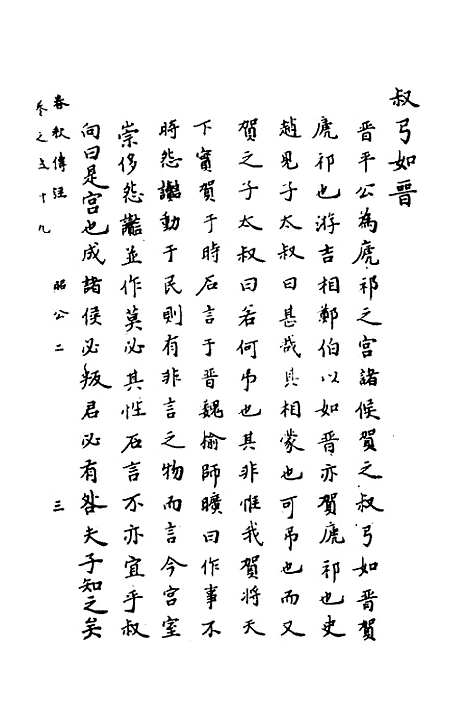 叔弓如晋
晋平公為虒祁之宫諸侯賀之叔弓如晋賀
虒祁也游吉相鄭伯以如晋亦賀虒祁也史
趙見子太叔曰甚哉其相蒙也可吊也而又
賀之子太叔曰若何吊也其非惟我賀將天
下實賀于時石言于晋魏榆師曠曰作事不
時怨讟動于民則有非言之物而言今宫室
崇侈怨讟並作莫必其性石言不亦宜乎叔
向曰是宫也成諸侯必叛君必有咎夫子知之矣
春秋傳注
卷之五十九 昭公二 三